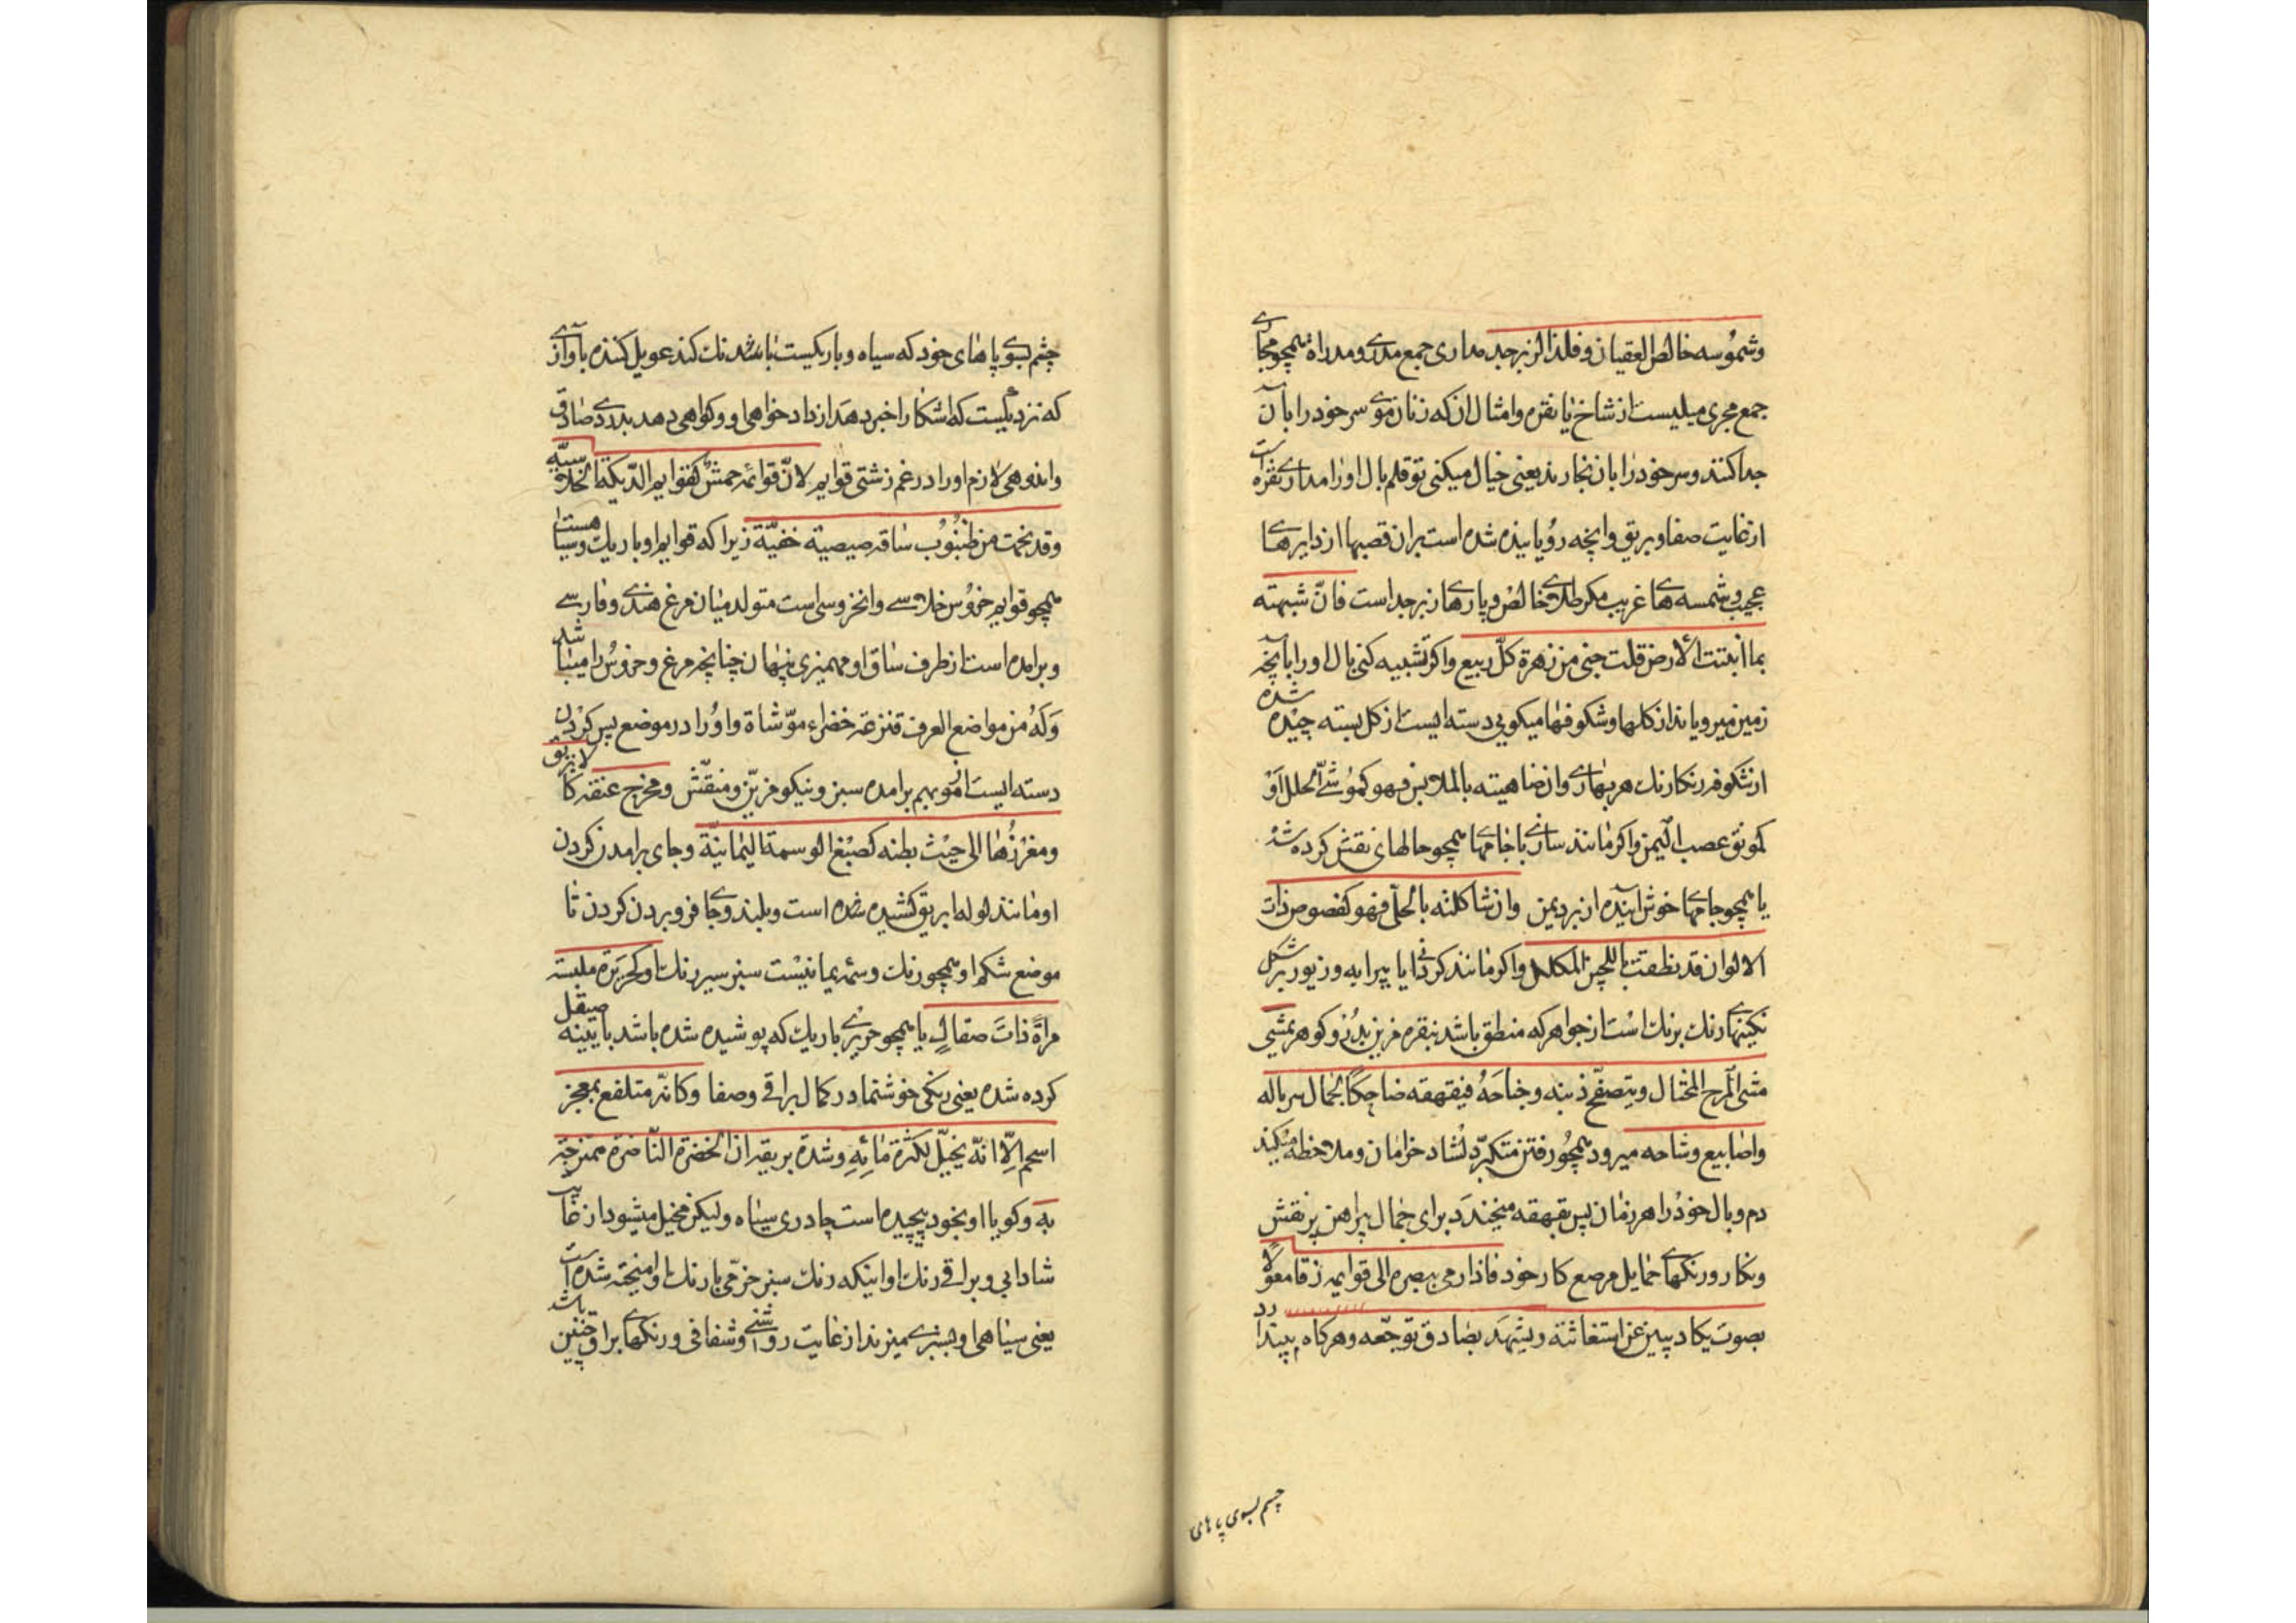 وشموسه خالص العقیان و فلذ الزبرجد مداری جمع مدری و مدراة همچو مجاری
جمع مجری میلیست از شاخ یا نقره و امثال ان که زنان موی سر خود را بآن
جدا کنند و سر خود را بان بخارند یعنی خیال میکنی تو قلم بال او را مداری نقره است
از غایت صفا و بریق و انچه رویانیده شده است بران قصبها از دایرهای
عجیب و شمسه های غریب مکر طلای خالص و پارهای زبرجد است فانّ شبهته
بما انبتت الارض قلت جنی من زهرة کلّ ربیع و اکر تشبیه کنی بال او را بآنچه
زمین میرویاند از کلها و شکوفها میکویی دسته ایست از کل بسته چیده شده
از شکوفه رنکارنك هر بهاری و ان ضاهیته بالملابس فهو کموشیّ الحلل او
کمونق عصب الیمن و اکر مانند سازی با جامها همچو حلهای نقش کرده شد
یا همچو جامهای خوش آینده از برد یمن و ان شاکلته بالحلّی فهو کفصوص ذات
الالوان قد نطقت باللجین المکلل و اکر مانند کردانی او را با پیرایه و زیور بر شکل
نکینهای رنك برنك است از جواهر که منطق باشد بنقره مزین بدُر و کوهر یمشی
مشی المرح المختال و یتصفّح ذنبه و جناحَهُ فیقهقه ضاحِکًا لجمال سرباله
و اصابیع وشاحه میرود همچو رفتن متکبّر دلشاد خرامان و ملاحظه میکند
دم و بال خود را هر زمان پس بقهقه میخندد برای جمال پیراهن پر نقش
و نکار و رنکهای حمایل مرصع کار خود فاذا رمی ببصره الی قوایمه زقا معولاً
بصوت یکاد یبین عن استغاثته و یشهد بصادق توجّعه و هرکاه بیندازد
چشم بسوی پاهای
چشم بسوی پاهای خود که سیاه و باریکست بانك کند عویل کننده بآوازی
که نزدیکست که اشکارا خبر دهد از داد خواهی او و کواهی دهد بدرد صادق
و اندوهی لازم او را در غم زشتی قوایم لانّ قوائمه حمشٌ کقوایم الدّیکة الخلاسیّه
و قد نجمت من ظنبوب ساقه صیصیة خفیّة زیرا که قوایم او باریك و سیاهست
همچو قوایم خروس خلاسی و ان خروسی است متولد میان مرغ هندی و فارسی
و برامده است از طرف ساق او مهمیزی پنهان چنانچه مرغ و خروس را میباشد
وَلَهُ من مواضع العرف قنزعة خضراء موّشاة و او را در موضع پس کردن
دسته ایست از موی بهم برامده سبز و نیکو مزیّن و منقّش و مخرج عنقه کالابریق
و مغرزُها الی حیث بطنه کصبغ الوسمة الیمانیّة و جای برامدن کردن
او مانند لوله ابریق کشیده شده است و بلند و جای فرو بردن کردن تا
موضع شکم او همچو رنك وسمه یمانیست سبز سیر رنك او کحریرة ملبسة
مرآةً ذاتَ صقالٍ یا همچو حریری باریك که پوشیده شده باشد بآیینه صیقل
کرده شده یعنی رنکی خوشنما در کمال براقی و صفا و کانّه متلفع بمعجز
اسحم الّا انّه یخیّل لکثرة مائِهِ و شدة بریقه ان الخضرة النّاضرة ممتزجة
به و کویا او بخود پیچیده است چادری سیاه ولیکن مخیل میشود از غایت
شادابی و براقی رنك او اینکه رنك سبز خرّمی با رنك او امیخته شده است
یعنی سیاهی او بسبزی میزند از غایت روشنی و شفافی و رنکهای براق چنین باشد